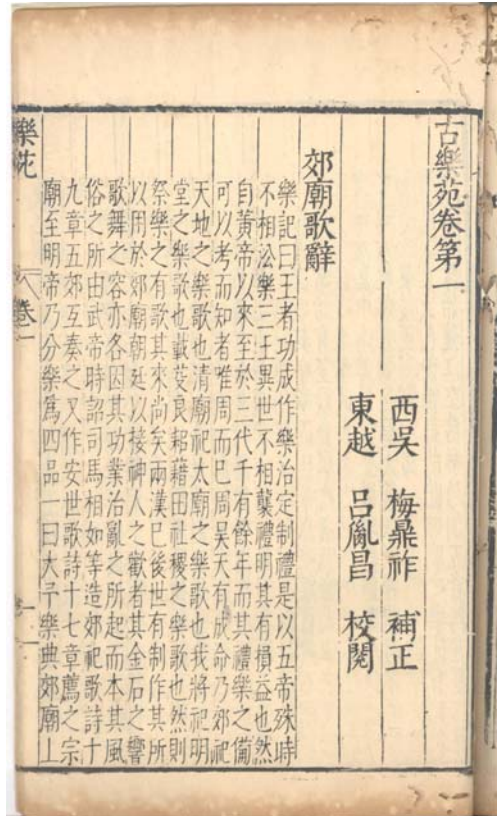 古樂苑卷第一
西吳 梅鼎祚 補正
東越 呂胤昌 校閱
郊廟歌辭
樂記曰王者功成作樂治定制禮是以五帝殊時
不相沿樂三王異世不相襲禮明其有損益也然
自黃帝以來至於三代千有餘年而其禮樂之備
可以考而知者唯周而已周昊天有成命乃郊祀
天地之樂歌也清廟祀太廟之樂歌也我將祀明
堂之樂歌也載芟良耜藉田社稷之樂歌也然則
祭樂之有歌其來尚矣兩漢已後世有制作其所
以用於郊廟朝廷以接神人之歡者其金石之響
歌舞之容亦各因其功業治亂之所起而本其風
俗之所由武帝時詔司馬相如等造郊祀歌詩十
九章五郊互奏之又作安世歌詩十七章薦之宗
廟至明帝乃分樂爲四品一曰大予樂典郊廟上
樂苑 卷一 一